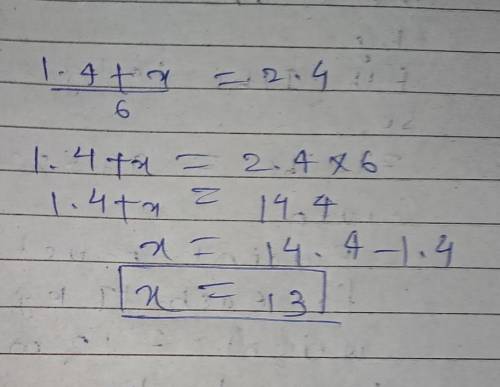 1.4+x = 2.4
6
1.4+x = 2.4×6
1.4+x = 14.4
x = 14.4-1.4
x = 13